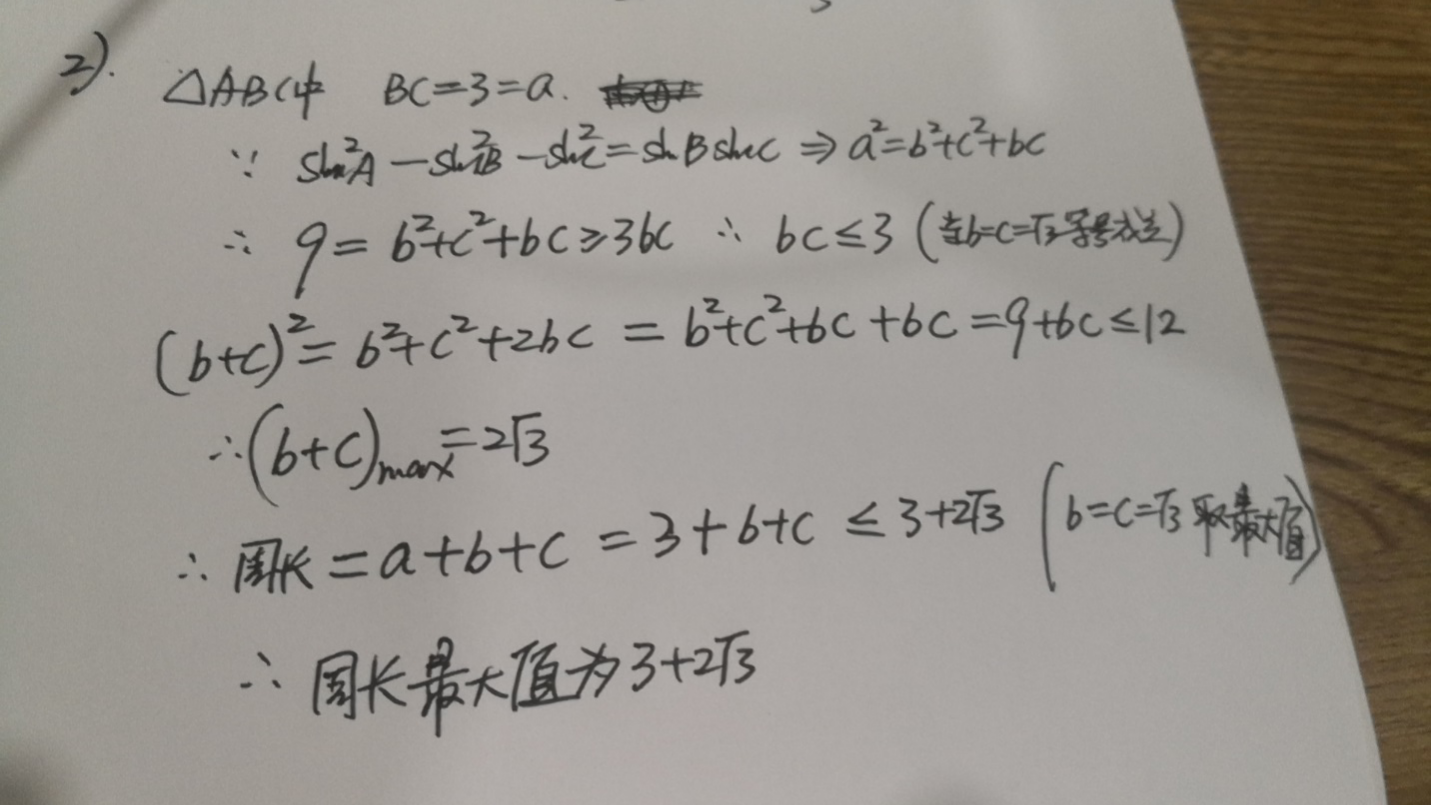 2). △ABC中 BC=3=a.
∵ sin²A-sin²B-sin²C=sinBsinC⇒a²=b²+c²+bc
∴ 9=b²+c²+bc≥3bc ∴ bc≤3(当b=c=√3等号成立)
(b+c)²=b²+c²+2bc=b²+c²+bc+bc=9+bc≤12
∴(b+c)max=2√3
∴周长=a+b+c=3+b+c≤3+2√3(b=c=√3取最大值)
∴周长最大值为3+2√3